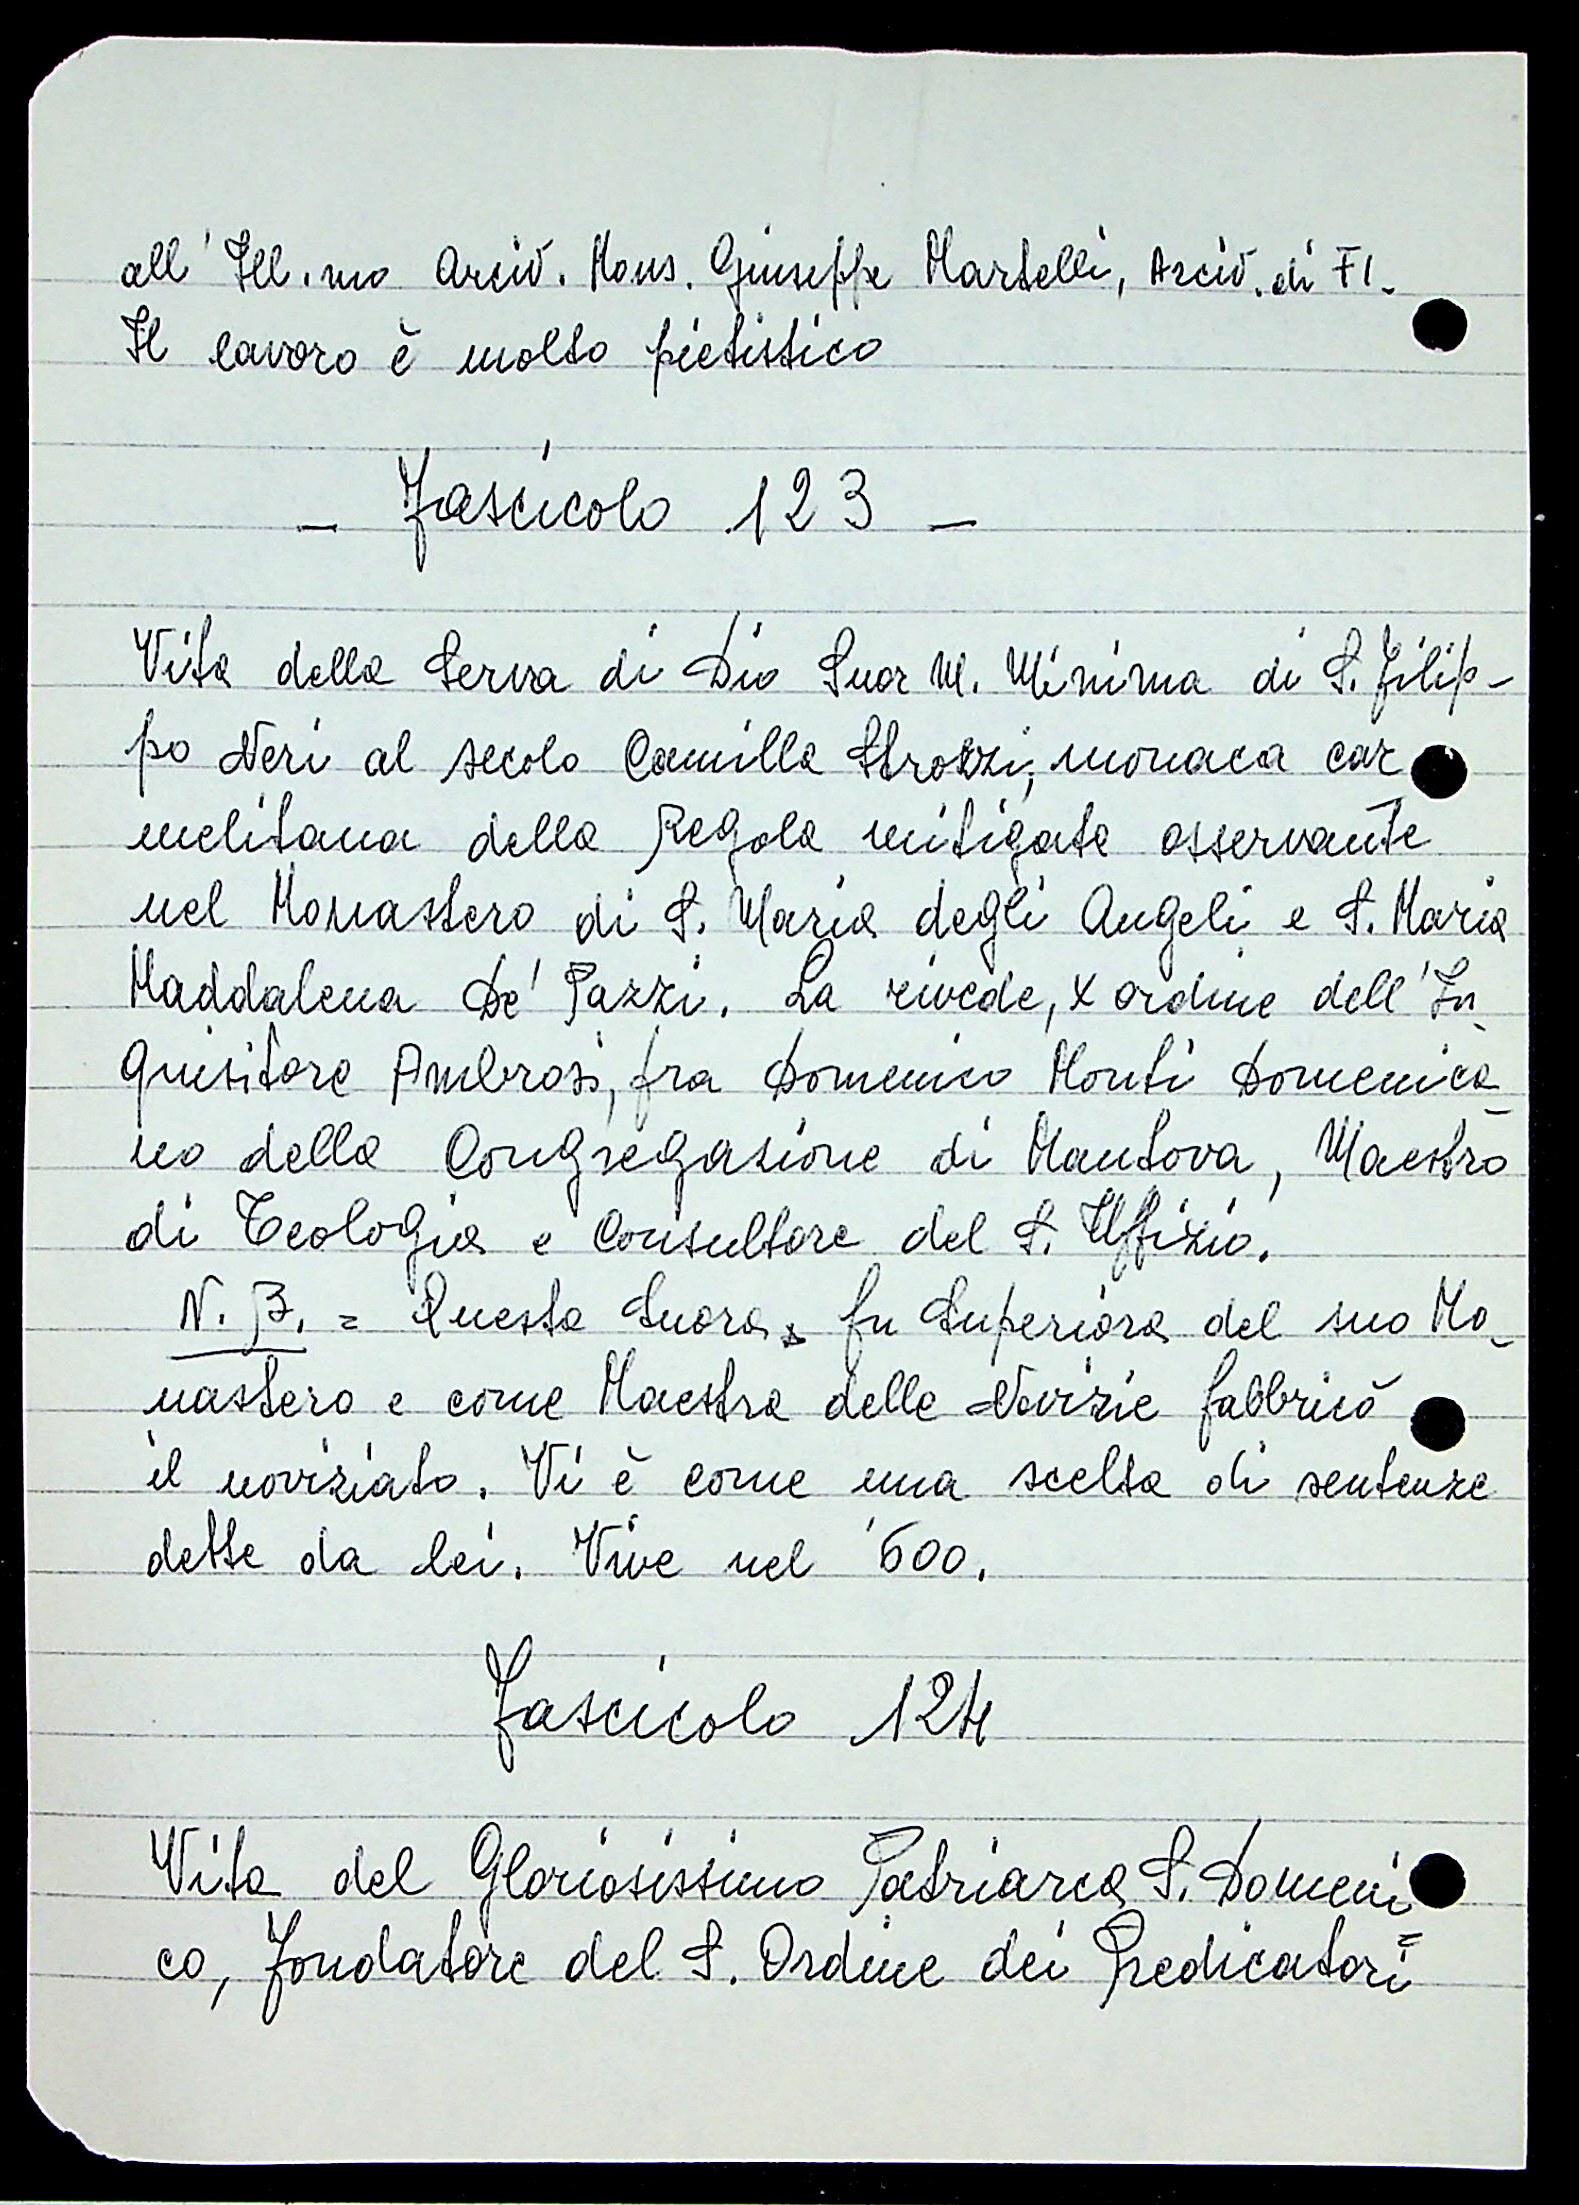 all'Ill.mo Arciv. Mons. Giuseppe Martelli, Arciv. di FI.
Il lavoro è molto pietistico
- Fascicolo 123 -
Vita della Serva di Dio Suor M. Minima di S. Filip-
po Neri al secolo Camilla Strozzi, monaca car
melitana della Regola mitigata osservante
nel Monastero di S. Maria degli Angeli e S. Maria
Maddalena De' Pazzi. La rivede, x ordine dell'In
quisitore Ambrosi, fra Domenico Monti Domenica
no della Congregazione di Mantova, Maestro
di Teologia e Consultore del S. Uffizio.
N.B. = Questa Suora fu Superiora del suo Mo-
nastero e come Maestra delle Novizie fabbricò
il noviziato. Vi è come una scelta di sentenze
dette da lei. Vive nel '600.
Fascicolo 124
Vita del Gloriosissimo Patriarca S. Domeni
co, fondatore del S. Ordine dei Predicatori=